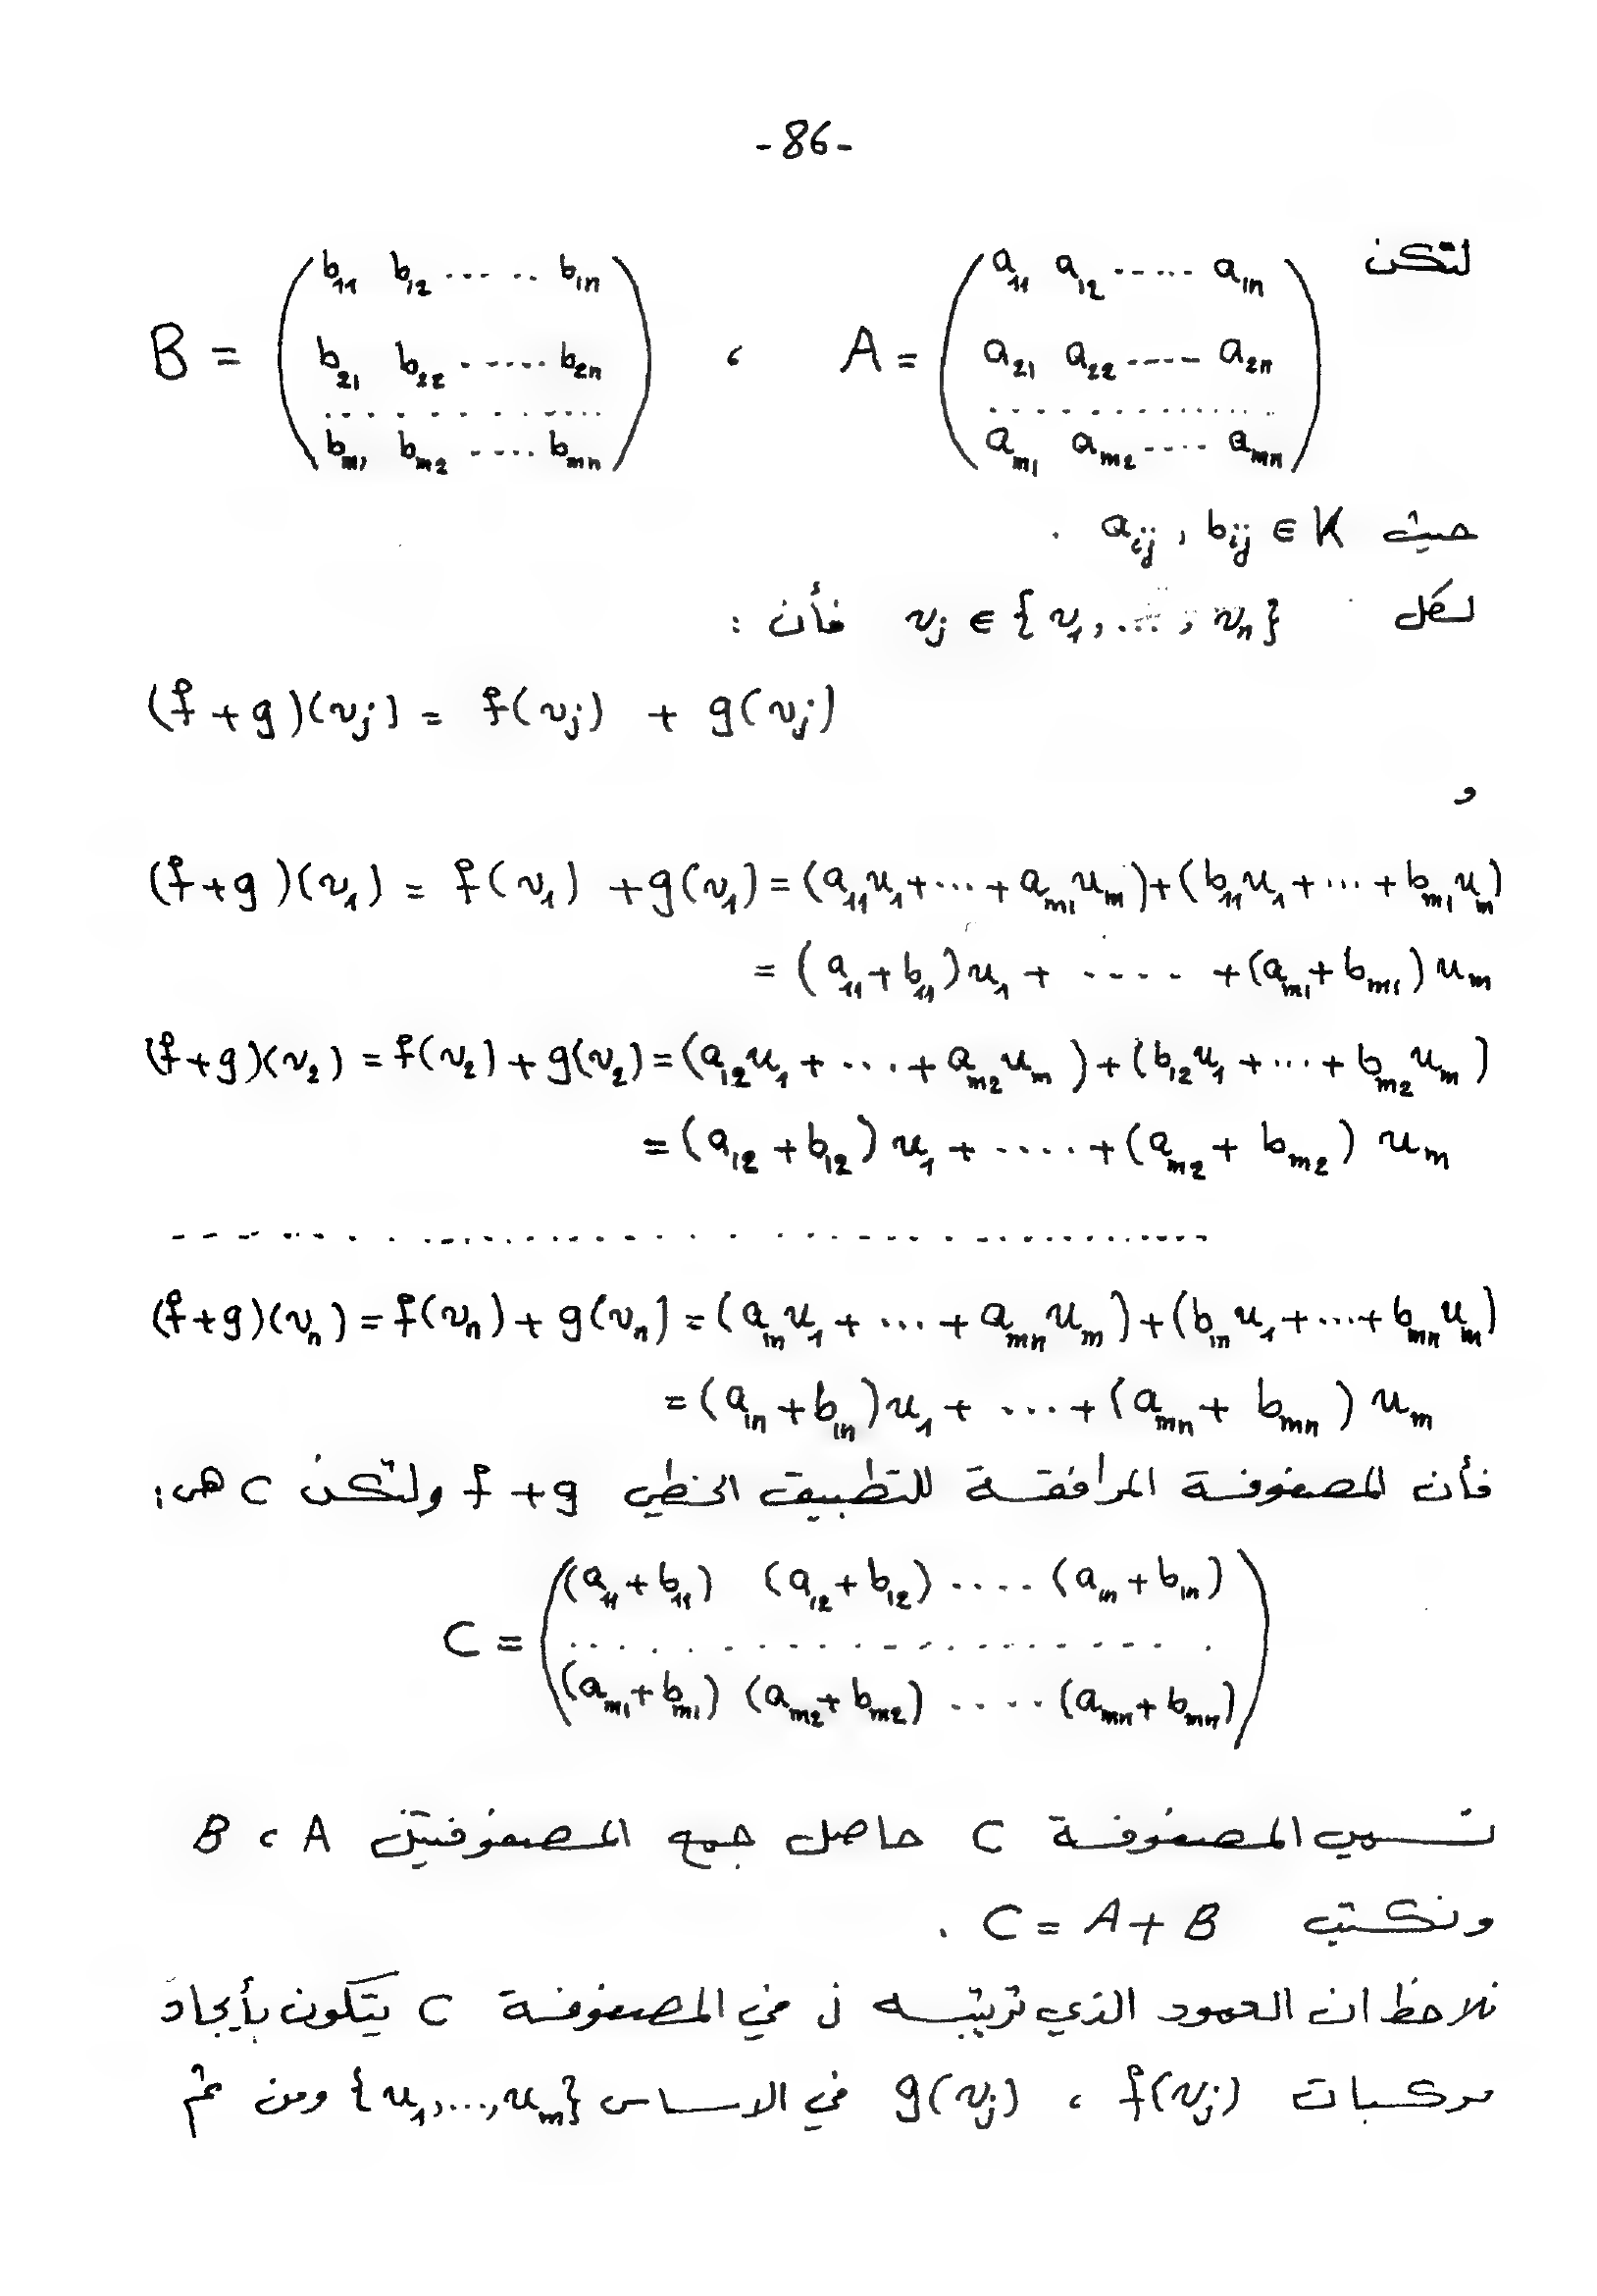 -86-
لتكن $A = \begin{pmatrix} a_{11} & a_{12} & \cdots & a_{1n} \\ a_{21} & a_{22} & \cdots & a_{2n} \\ \cdots \\ a_{m1} & a_{m2} & \cdots & a_{mn} \end{pmatrix}$ ، $B = \begin{pmatrix} b_{11} & b_{12} & \cdots & b_{1n} \\ b_{21} & b_{22} & \cdots & b_{2n} \\ \cdots \\ b_{m1} & b_{m2} & \cdots & b_{mn} \end{pmatrix}$
حيث $a_{ij} , b_{ij} \in K$ .
لكل $v_j \in \{v_1, \ldots, v_n\}$ فأن :
$(f+g)(v_j) = f(v_j) + g(v_j)$
و
$(f+g)(v_1) = f(v_1) + g(v_1) = (a_{11}u_1 + \cdots + a_{m1}u_m) + (b_{11}u_1 + \cdots + b_{m1}u_m)$
$= (a_{11}+b_{11})u_1 + \cdots + (a_{m1}+b_{m1})u_m$
$(f+g)(v_2) = f(v_2) + g(v_2) = (a_{12}u_1 + \cdots + a_{m2}u_m) + (b_{12}u_1 + \cdots + b_{m2}u_m)$
$= (a_{12}+b_{12})u_1 + \cdots + (a_{m2}+b_{m2})u_m$
..........................................
$(f+g)(v_n) = f(v_n) + g(v_n) = (a_{1n}u_1 + \cdots + a_{mn}u_m) + (b_{1n}u_1 + \cdots + b_{mn}u_m)$
$= (a_{1n}+b_{1n})u_1 + \cdots + (a_{mn}+b_{mn})u_m$
فأن المصفوفة المرافقة للتطبيق الخطي $f+g$ ولتكن C هى:
$C = \begin{pmatrix} (a_{11}+b_{11}) & (a_{12}+b_{12}) & \cdots & (a_{1n}+b_{1n}) \\ \cdots \\ (a_{m1}+b_{m1}) & (a_{m2}+b_{m2}) & \cdots & (a_{mn}+b_{mn}) \end{pmatrix}$
تسمى المصفوفة C حاصل جمع المصفوفتين A ، B
ونكتب $C = A + B$ .
نلاحظ ان العمود الذي ترتيبه j في المصفوفة C يتكون بأيجاد
مركبات $f(v_j)$ ، $g(v_j)$ في الاساس $\{u_1, \ldots, u_m\}$ ومن ثم